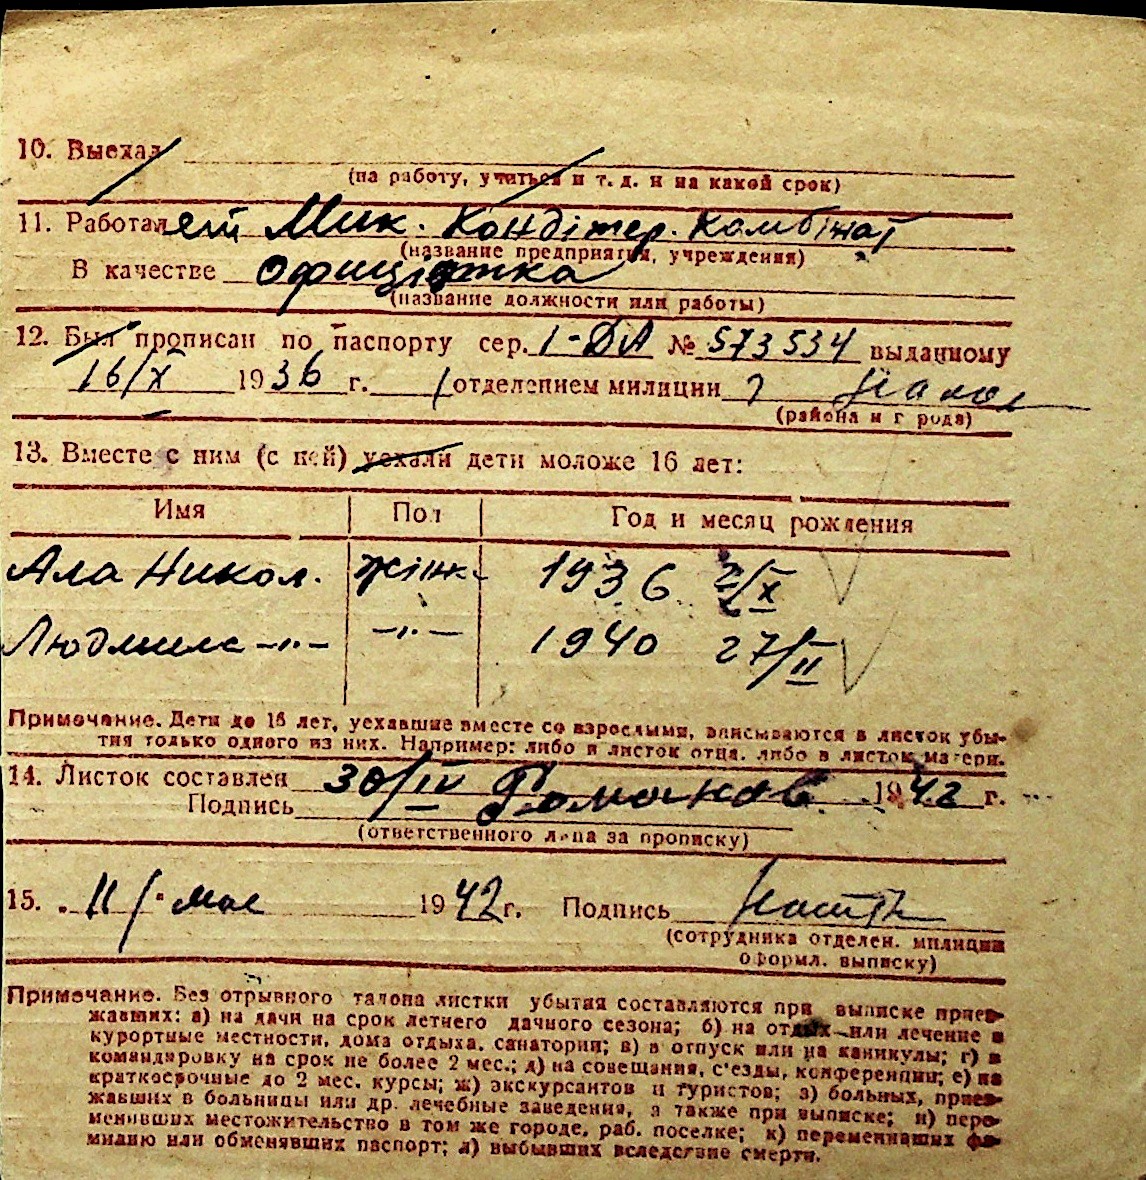 10. Выехал
(на работу, учиться и т. д. и на какой срок)
11. Работал ет Мик. Кондітер. Комбінат
(название предприятия, учреждения)
В качестве Официатка
(название должности или работы)
12. Был прописан по паспорту сер. I-ДА № 573534 выданному
16/X 1936 г. 1 отделением милиции
(района и города)
13. Вместе с ним (с ней) уехали дети моложе 16 лет:
Имя Пол Год и месяц рождения
Ала Никол. жінк. 1936 2/X
Людмила -"- -"- 1940 27/II
Примечание. Дети до 16 лет, уехавшие вместе со взрослыми, вписываются в листок убы-
тия только одного из них. Например: либо в листок отца, либо в листок матери.
14. Листок составлен 30/IV 1942 г.
Подпись
(ответственного лица за прописку)
15. 11/ мае 1942 г. Подпись
(сотрудника отделен. милиции
оформл. выписку)
Примечание. Без отрывного талона листки убытия составляются при выписке приез-
жавших: а) на дачи на срок летнего дачного сезона; б) на отдых или лечение в
курортные местности, дома отдыха, санатории; в) в отпуск или на каникулы; г) в
командировку на срок не более 2 мес.; д) на совещания, с'езды, конференции; е) на
краткосрочные до 2 мес. курсы; ж) экскурсантов и туристов; з) больных, приез-
жавших в больницы или др. лечебные заведения, а также при выписке; и) пере-
менивших местожительство в том же городе, раб. поселке; к) переменивших фа-
милию или обменявших паспорт; л) выбывших вследствие смерти.